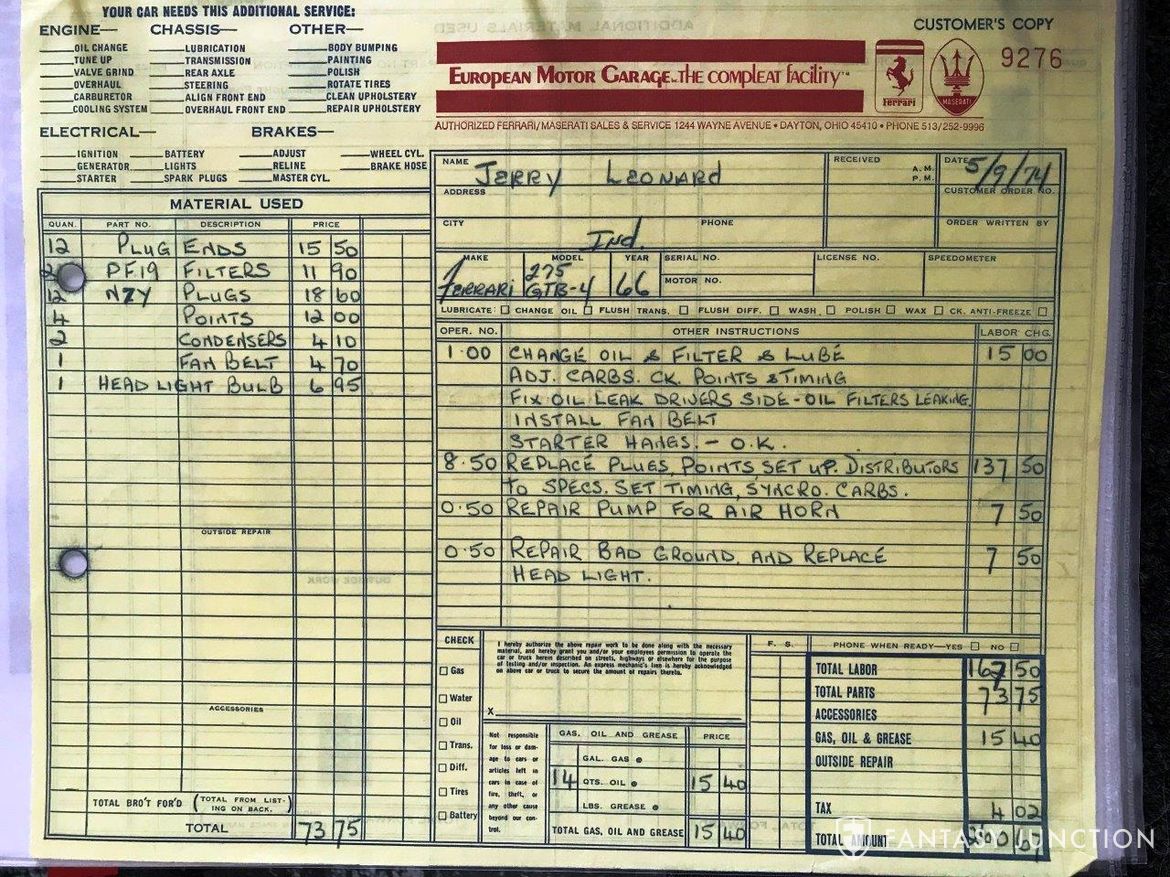 YOUR CAR NEEDS THIS ADDITIONAL SERVICE:
ENGINE— CHASSIS— OTHER—
OIL CHANGE LUBRICATION BODY BUMPING
TUNE UP TRANSMISSION PAINTING
VALVE GRIND REAR AXLE POLISH
OVERHAUL STEERING ROTATE TIRES
CARBURETOR ALIGN FRONT END CLEAN UPHOLSTERY
COOLING SYSTEM OVERHAUL FRONT END REPAIR UPHOLSTERY
ELECTRICAL— BRAKES—
IGNITION BATTERY ADJUST WHEEL CYL.
GENERATOR LIGHTS RELINE BRAKE HOSE
STARTER SPARK PLUGS MASTER CYL.
CUSTOMER'S COPY
9276
EUROPEAN MOTOR GARAGE..THE COMPLEAT FACILITY
Ferrari MASERATI
AUTHORIZED FERRARI/MASERATI SALES & SERVICE 1244 WAYNE AVENUE • DAYTON, OHIO 45410 • PHONE 513/252-9996
NAME JERRY LEONARD RECEIVED A.M. P.M. DATE 5/9/74
ADDRESS CUSTOMER ORDER NO.
CITY Ind. PHONE ORDER WRITTEN BY
MAKE MODEL YEAR SERIAL NO. LICENSE NO. SPEEDOMETER
FERRARI 275 GTB-4 66 MOTOR NO.
LUBRICATE CHANGE OIL FLUSH TRANS. FLUSH DIFF. WASH POLISH WAX CK. ANTI-FREEZE
MATERIAL USED
QUAN. PART NO. DESCRIPTION PRICE
12 PLUG ENDS 15 50
PF19 FILTERS 11 90
12 N7Y PLUGS 18 60
4 POINTS 12 00
2 CONDENSERS 4 10
1 FAN BELT 4 70
1 HEAD LIGHT BULB 6 95
OUTSIDE REPAIR
ACCESSORIES
TOTAL BRO'T FOR'D (TOTAL FROM LISTING ON BACK.)
TOTAL 73 75
OPER. NO. OTHER INSTRUCTIONS LABOR CHG.
1.00 CHANGE OIL & FILTER & LUBE 15 00
ADJ. CARBS. CK. POINTS & TIMING
FIX OIL LEAK DRIVERS SIDE - OIL FILTERS LEAKING.
INSTALL FAN BELT
STARTER HANGS. - O.K.
8.50 REPLACE PLUGS, POINTS SET UP. DISTRIBUTORS 137 50
TO SPECS. SET TIMING, SYNCRO. CARBS.
0.50 REPAIR PUMP FOR AIR HORN 7 50
0.50 REPAIR BAD GROUND, AND REPLACE 7 50
HEAD LIGHT.
CHECK
Gas
Water
Oil
Trans.
Diff.
Tires
Battery
I hereby authorize the above repair work to be done along with the necessary
material, and hereby grant you and/or your employees permission to operate the
car or truck herein described on streets, highways or elsewhere for the purpose
of testing and/or inspection. An express mechanic's lien is hereby acknowledged
on above car or truck to secure the amount of repairs thereto.
X
Not responsible
for loss or dam-
age to cars or
articles left in
cars in case of
fire, theft, or
any other cause
beyond our con-
trol.
GAS, OIL AND GREASE PRICE
GAL. GAS @
14 QTS. OIL @ 15 40
LBS. GREASE @
TOTAL GAS, OIL AND GREASE 15 40
F. S. PHONE WHEN READY—YES NO
TOTAL LABOR 167 50
TOTAL PARTS 73 75
ACCESSORIES
GAS, OIL & GREASE 15 40
OUTSIDE REPAIR
TAX 4 02
TOTAL AMOUNT
FANTASY JUNCTION